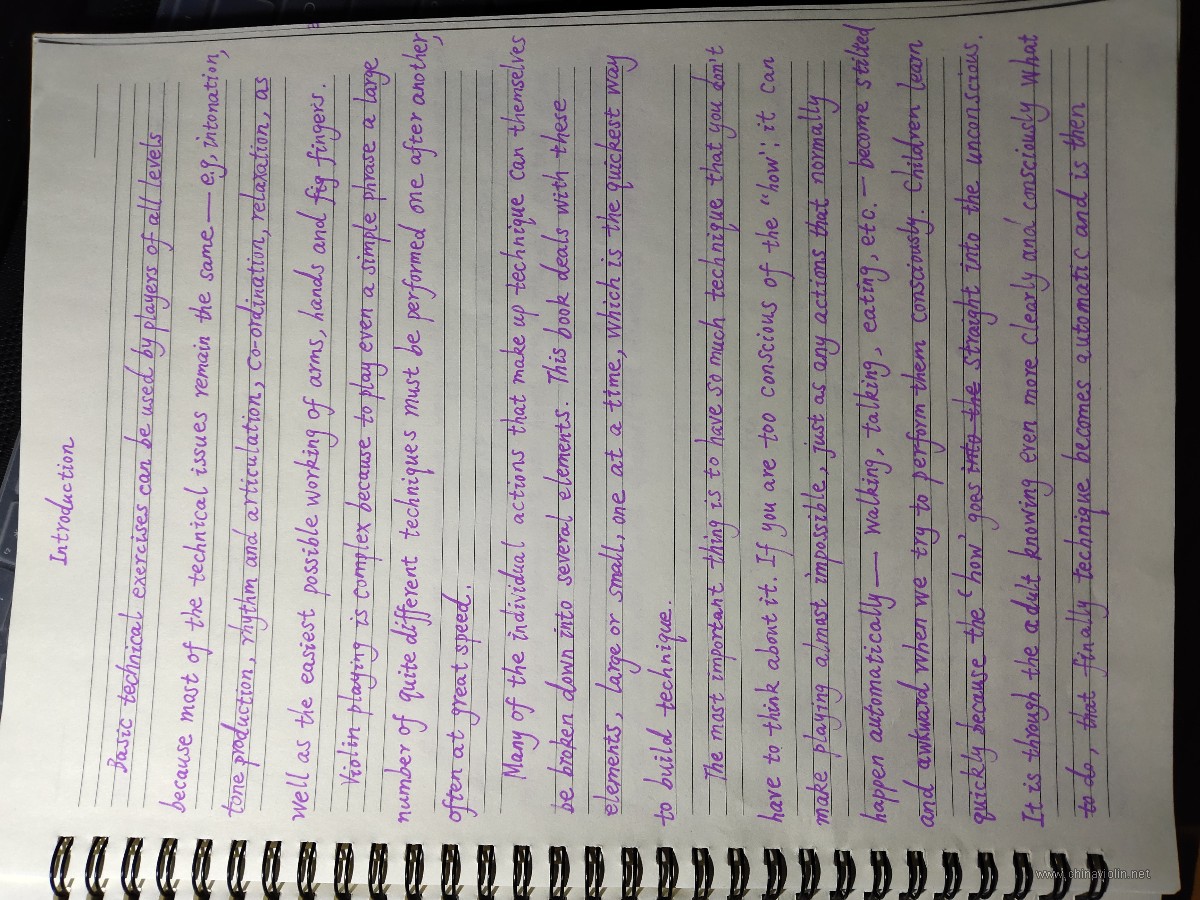 Introduction
Basic technical exercises can be used by players of all levels
because most of the technical issues remain the same — e.g, intonation,
tone production, rhythm and articulation, co-ordination, relaxation, as
well as the easiest possible working of arms, hands and fig fingers.
Violin playing is complex because to play even a simple phrase a large
number of quite different techniques must be performed one after another,
often at great speed.
Many of the individual actions that make up technique can themselves
be broken down into several elements. This book deals with these
elements, large or small, one at a time, which is the quickest way
to build technique.
The most important thing is to have so much technique that you don't
have to think about it. If you are too conscious of the "how'; it can
make playing almost impossible, just as any actions that normally
happen automatically — walking, talking, eating, etc. — become stilted
and awkward when we try to perform them consciously. Children learn
quickly because the 'how' goes into the straight into the unconscious.
It is through the adult knowing even more clearly and consciously what
to do, that finally technique becomes automatic and is then
www.chinaviolin.net